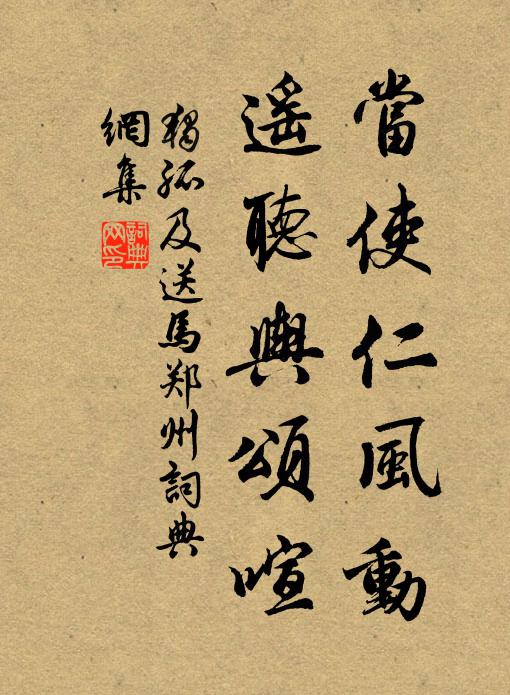 當使仁風動
遥聽輿頌喧
獨孤及送馬郑州詞典
網集
詞典網印